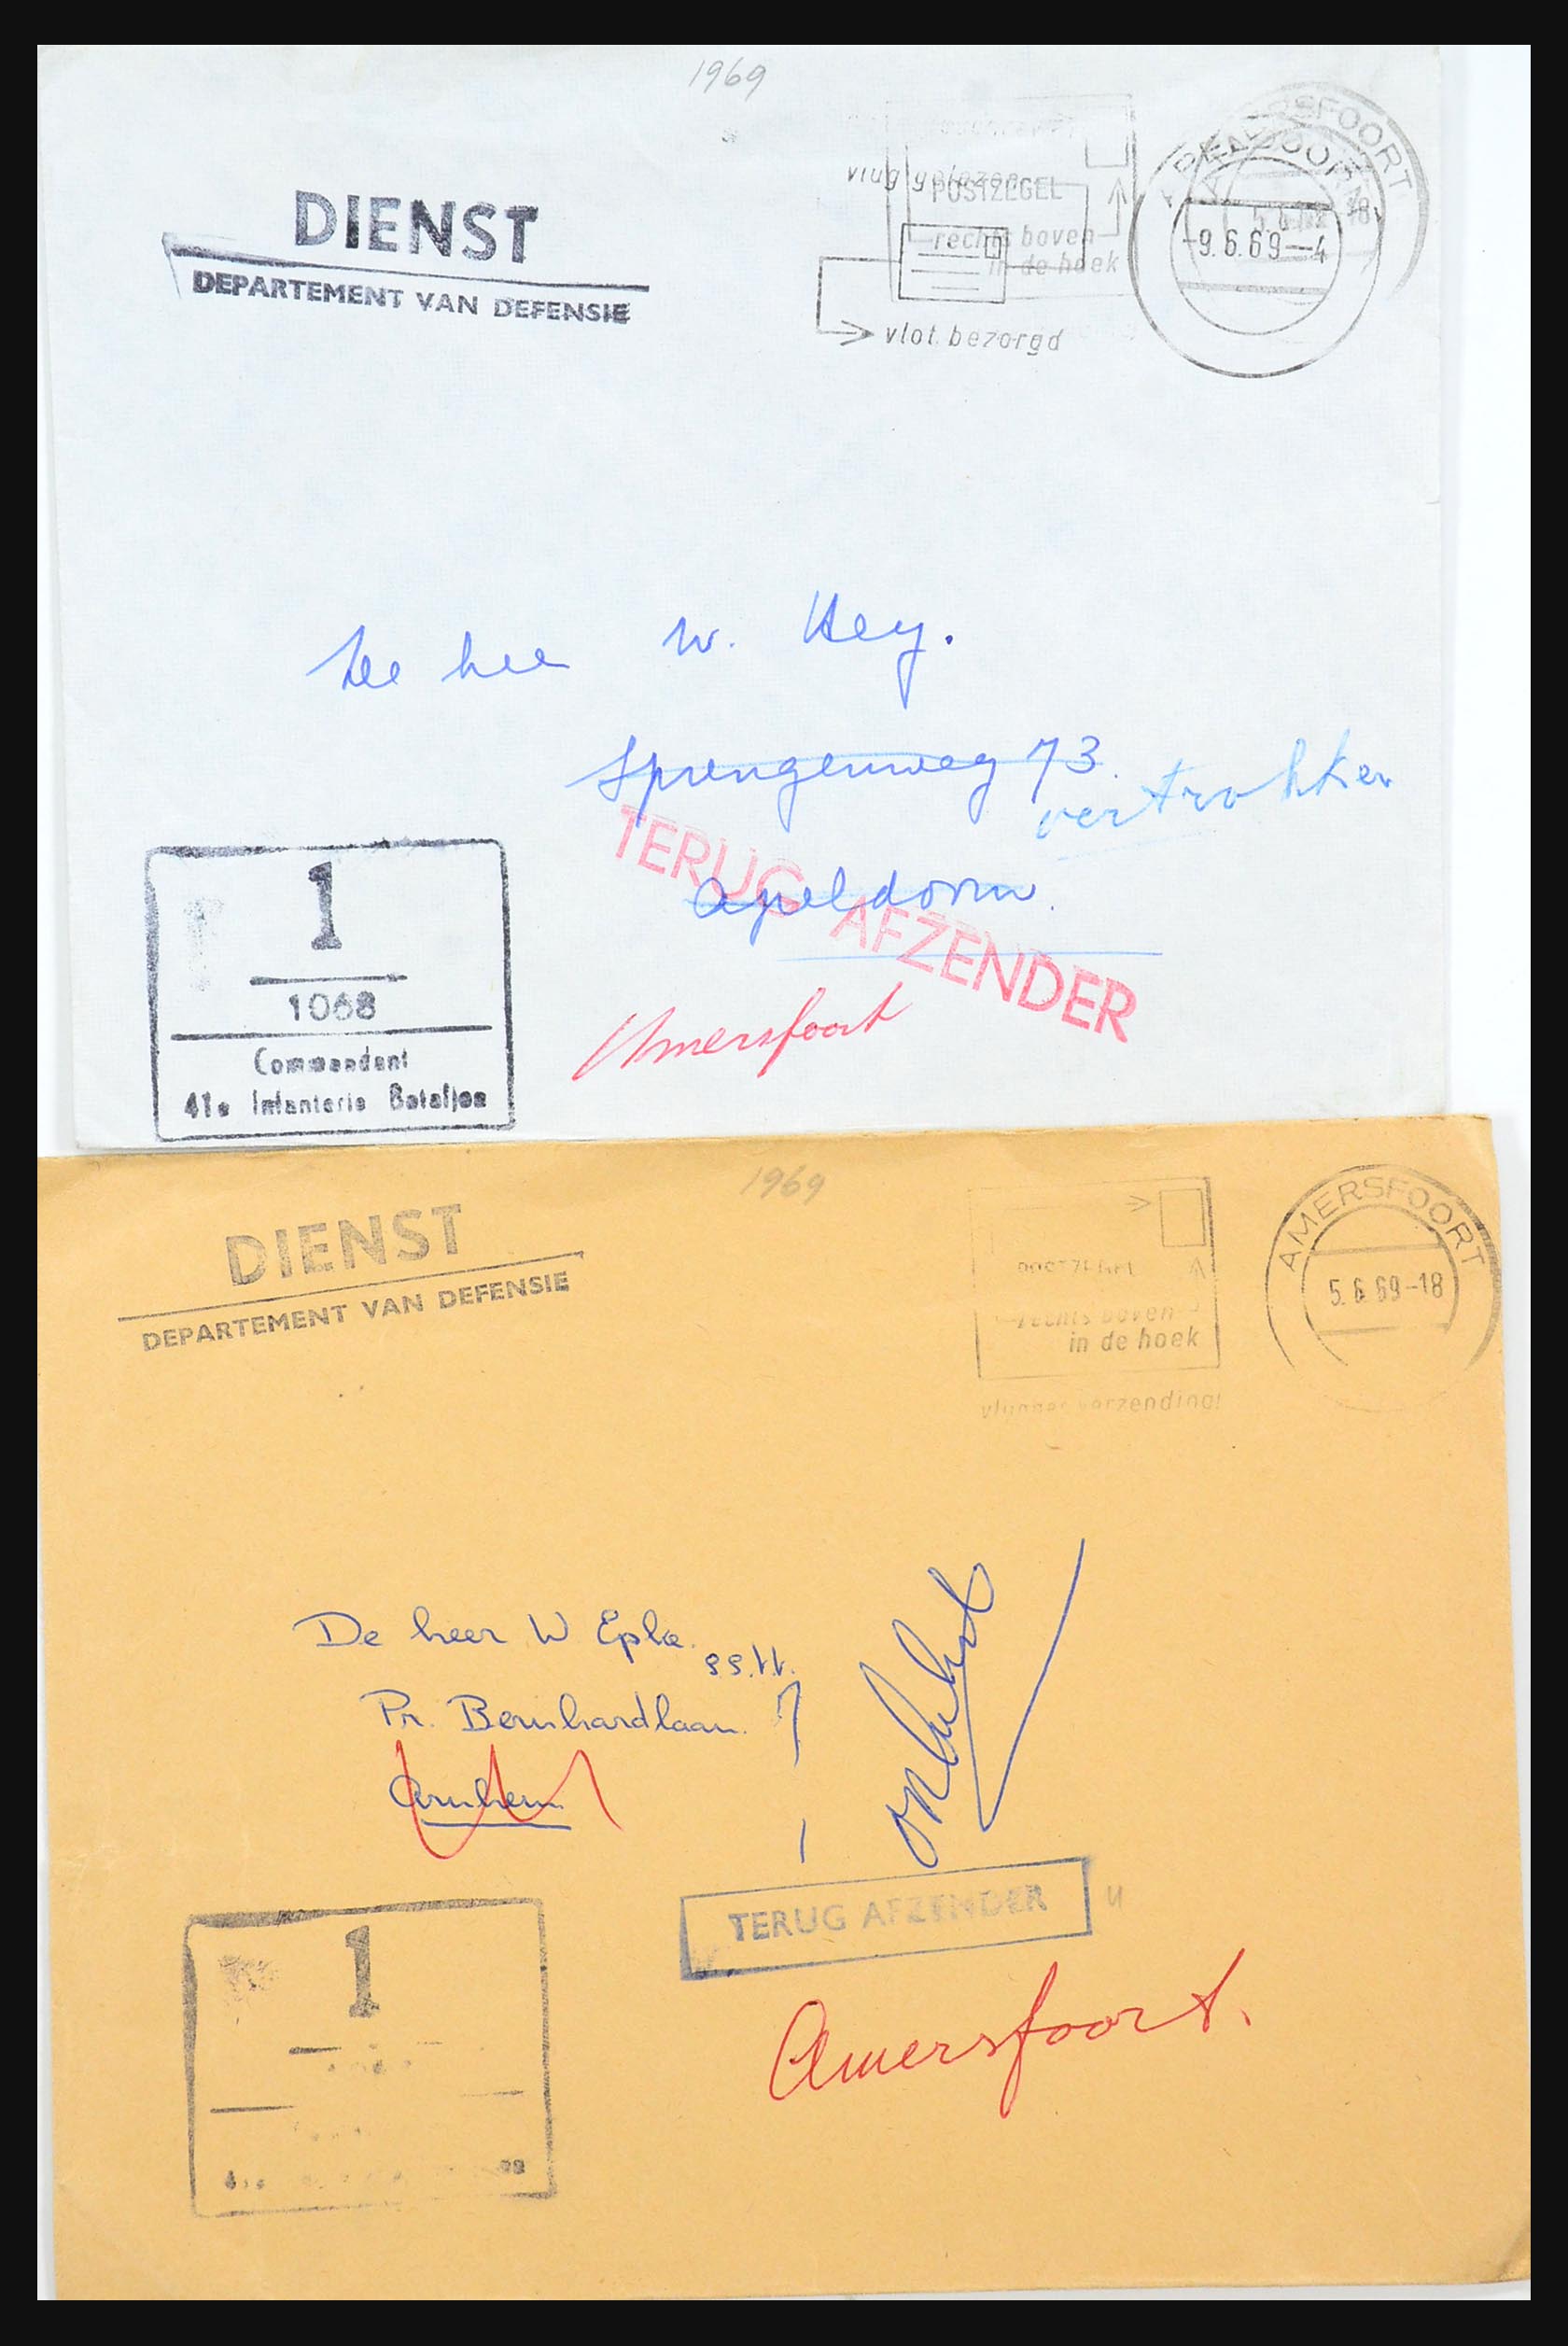 1969
DIENST
DEPARTEMENT VAN DEFENSIE
AMERSFOORT
APELDOORN
vlug gelezen
POSTZEGEL
rechts boven
in de hoek
-9.6.69-4
vlot bezorgd
W. Hey.
Sprengenweg 73.
vertrokken
Apeldoorn.
TERUG AFZENDER
Amersfoort
1
1068
Commandant
41e Infanterie Bataljon
1969
DIENST
DEPARTEMENT VAN DEFENSIE
AMERSFOORT
5.6.69-18
rechts boven
in de hoek
De heer W Epke.
Pr. Bernhardlaan.
Arnhem
onbekend
TERUG AFZENDER
Amersfoort.
1